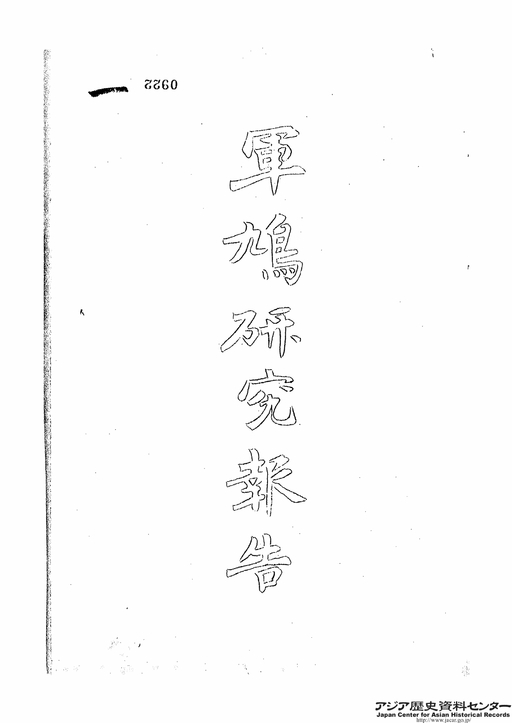 0922
軍鳩研究報告
アジア歴史資料センター
Japan Center for Asian Historical Records
http://www.jacar.go.jp/